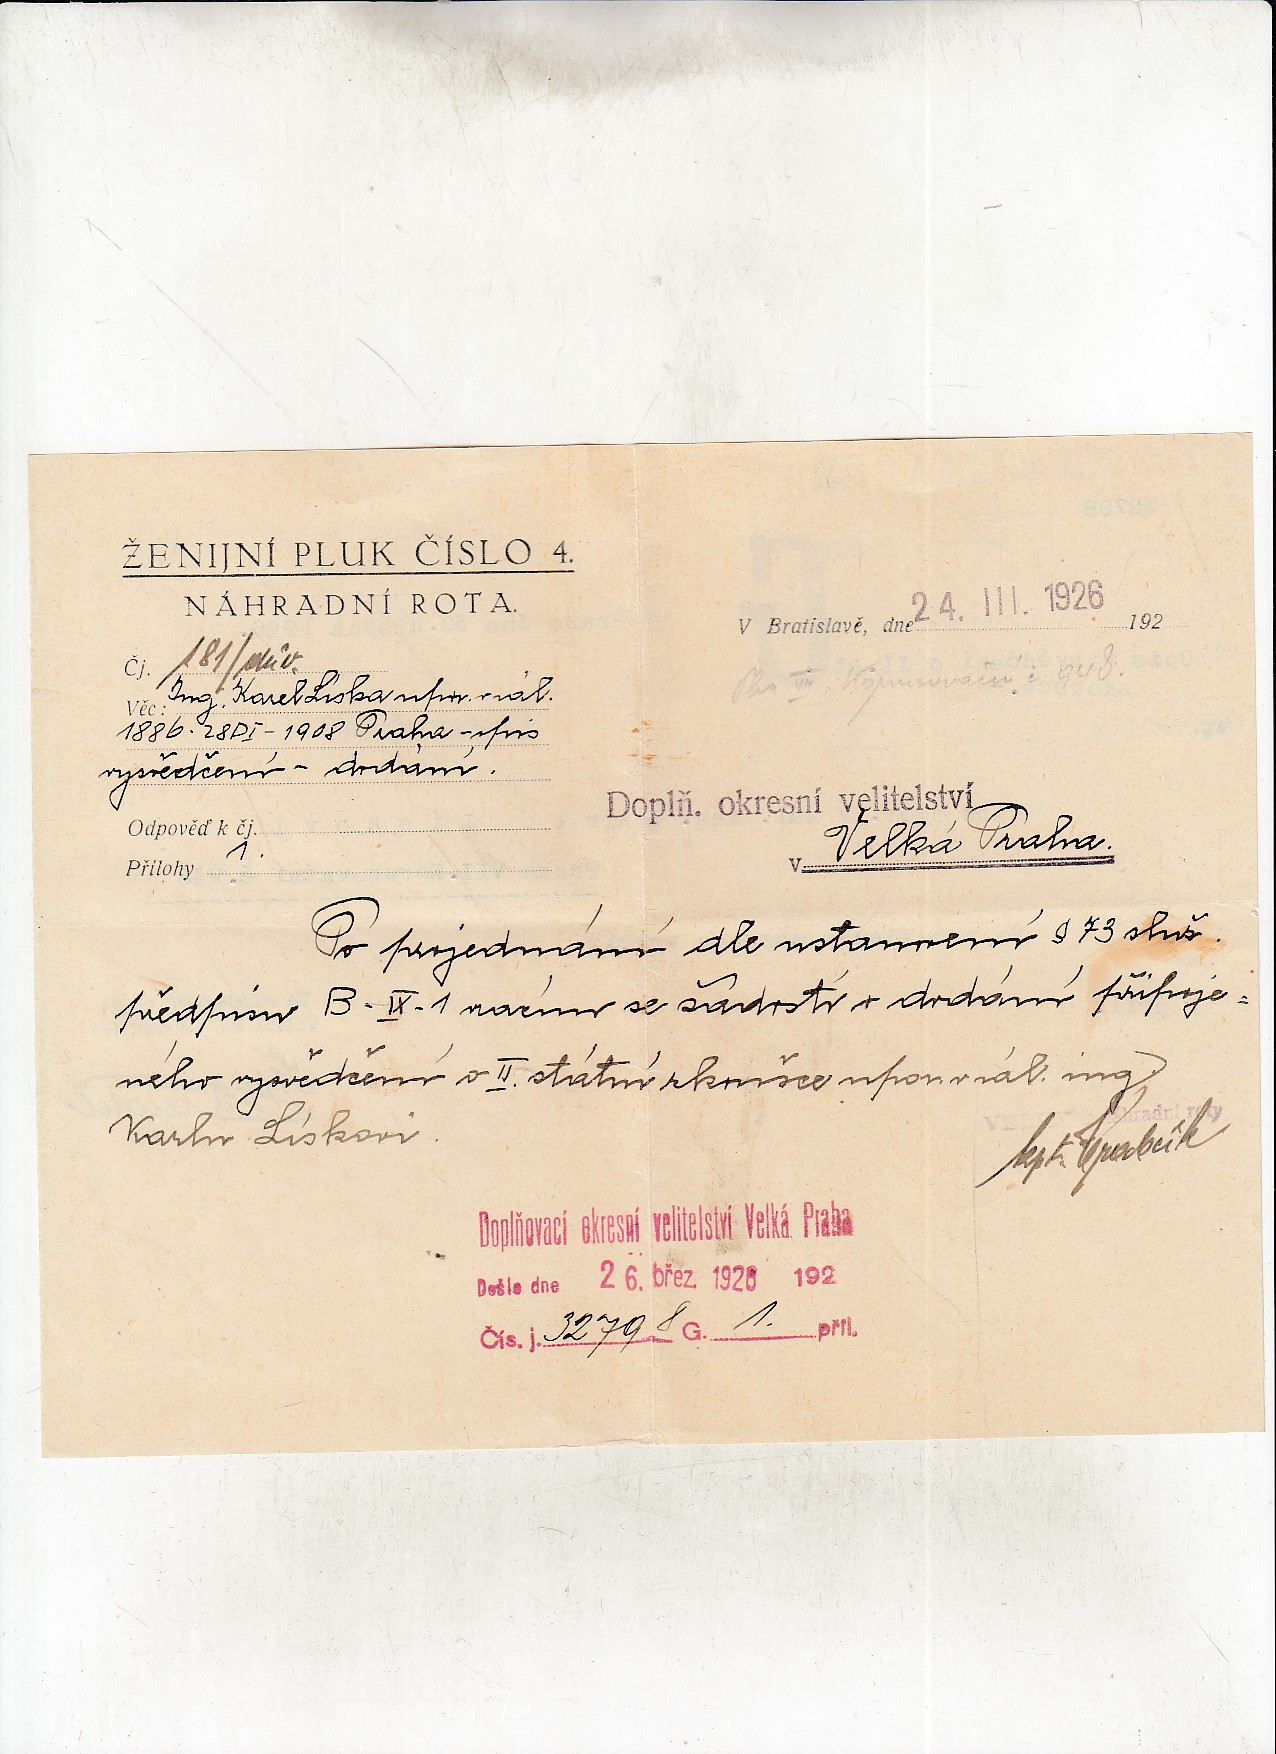 ŽENIJNÍ PLUK ČÍSLO 4.
NÁHRADNÍ ROTA.
V Bratislavě, dne 24. III. 1926 192
Čj. 181/dův.
Věc: Ing. Karel Líska
1886. Praha - opis
vysvědčení - dodání.
Odpověď k čj.
Přílohy 1.
Doplň. okresní velitelství
v Velká Praha.
Po projednání dle ustanovení § 73 služ.
předpisu B-IX-1 vracím se žádostí o dodání připoje=
ného vysvědčení o II. státní zkoušce ing
Karlu Lískovi.
kpt.
Doplňovací okresní velitelství Velká Praha
Došlo dne 26. břez. 1926 192
Čís. j. 32798 G. 1. příl.